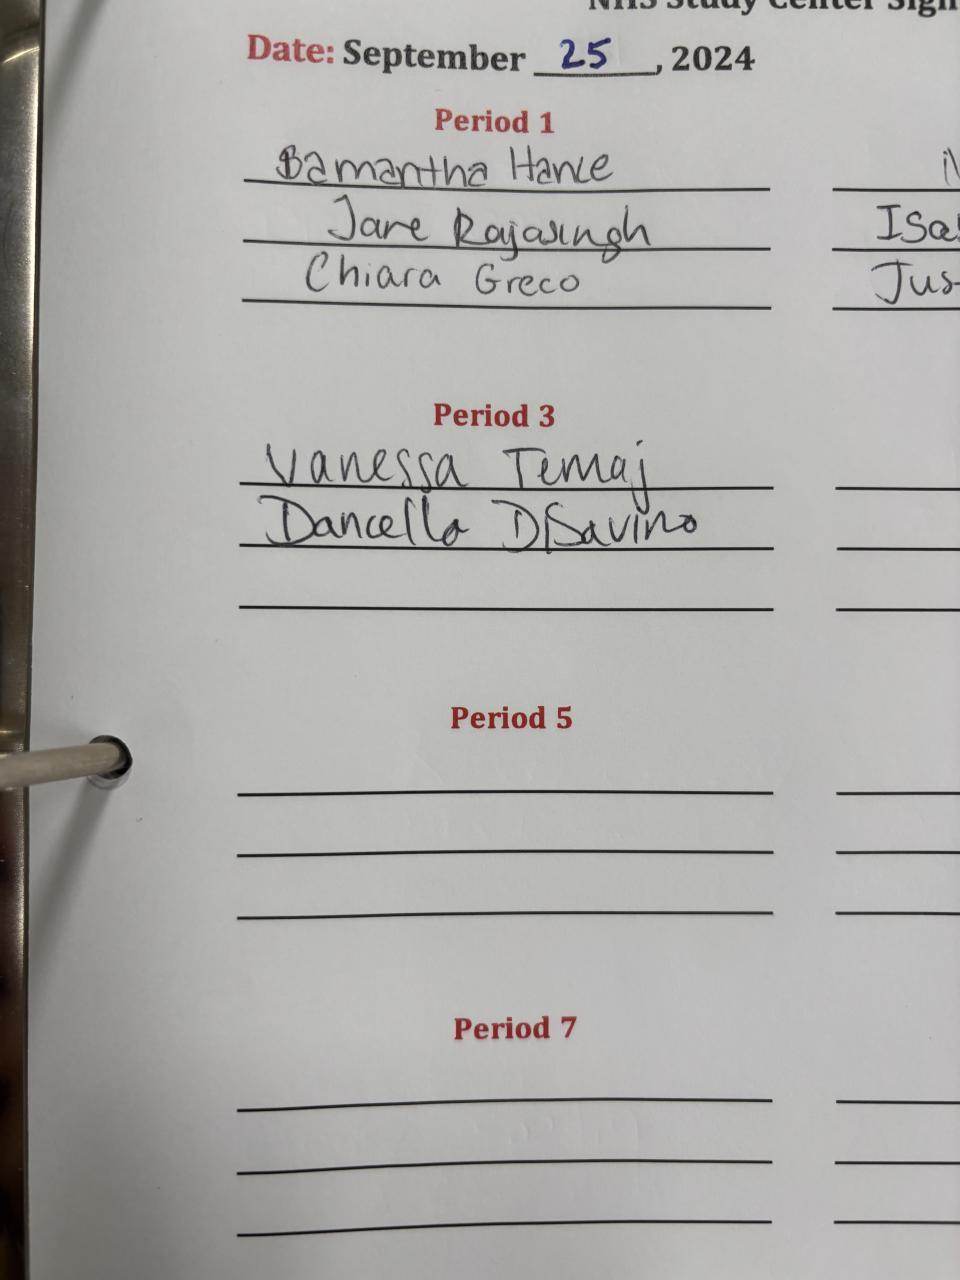 NHS Study Center Sign
Date: September 25, 2024
Period 1
Samantha Hance
Jane Rajasingh
Isa
Chiara Greco
Jus
Period 3
Vanessa Temaj
Dancella DiSavino
Period 5
Period 7